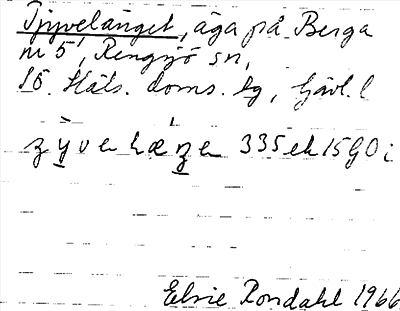 Tjyvelänget, äga på Berga
nr 5, Rengsjö sn,
Sö. Häls. doms. lg, Gävl. l
335 ek 15 G0 i
Elsie Rondahl 1966